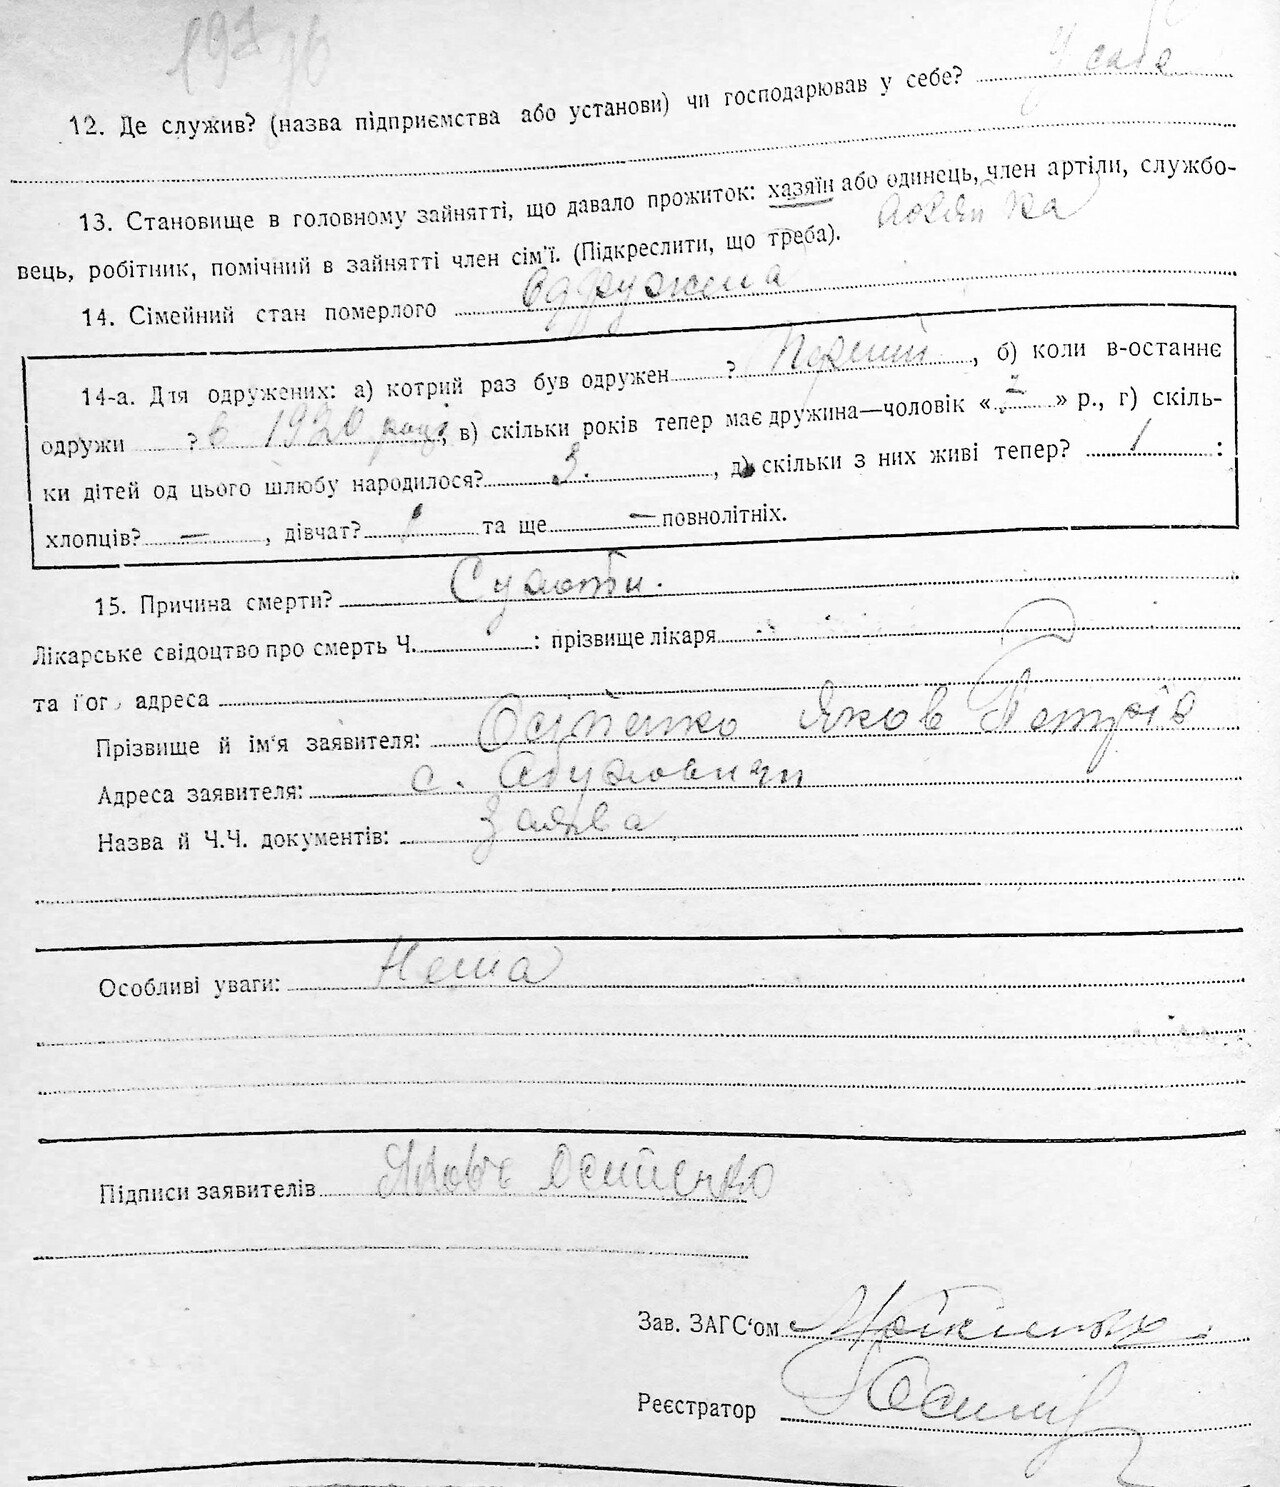 197
У себе
12. Де служив? (назва підприємства або установи) чи господарював у себе?
13. Становище в головному зайнятті, що давало прожиток: хазяїн або одинець, член артіли, службо-
вець, робітник, помічний в зайнятті член сім'ї. (Підкреслити, що треба).
14. Сімейний стан померлого Одружена
14-а. Для одружених: а) котрий раз був одружен ? Перший, б) коли в-останнє
одружи ? в 1920 році, в) скільки років тепер має дружина—чоловік « » р., г) скіль-
ки дітей од цього шлюбу народилося? 3. , д) скільки з них живі тепер? 1 :
хлопців? — , дівчат? 1 та ще — повнолітніх.
15. Причина смерти? Сухоти.
Лікарське свідоцтво про смерть Ч. : прізвище лікаря
та йог адреса
Прізвище й ім'я заявителя: Осипенко Яков Петрів
Адреса заявителя: с.
Назва й Ч.Ч. документів: Заява
Особливі уваги: Нема
Підписи заявителів Яковъ Осипенко
Зав. ЗАГС'ом
Реєстратор